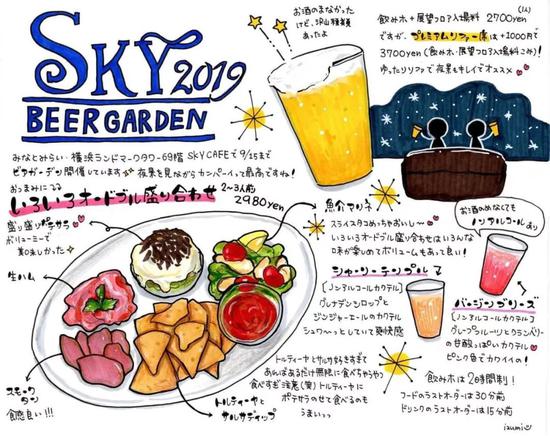 SKY 2019
BEER GARDEN
お酒のまなかった
けど、沢山種類
あったよ
飲みホ+展望フロア入場料 2700yen (1人)
ですが、プレミアムソファー席は+1000円で
3700yen (飲みホ・展望フロア入場料こみ)!
ゆったりソファで夜景もキレイでオススメ
みなとみらい 横浜ランドマークタワー69階 SKY CAFEで9/15まで
ビヤガーデン開催しています 夜景を見ながらカンパーイって最高ですね!
おつまみに
いろいろオードブル盛り合わせ 2~3人前
2980yen
盛り盛りポテサラ
ボリューミーで
美味しかった
生ハム
スモーク
タン
食感良い!!!
トルティーヤと
サルサディップ
魚介マリネ
スライスタコめっちゃおいし〜
いろいろオードブル盛り合わせはいろんな
味が楽しめてボリュームもあって良い!
シャーリーテンプル
[ノンアルコールカクテル]
グレナデンシロップと
ジンジャーエールのカクテル
シュワ〜っとしていて爽快感
お酒のめなくても
ノンアルコールあり
バージンブリーズ
[ノンアルコールカクテル]
グレープフルーツとクランベリー
の甘酸っぱいカクテル
ピンク色でカワイイの!
トルティーヤとサルサ好きすぎて
あればあるだけ無限に食べちゃうやつ
食べすぎ注意(笑)トルティーヤに
ポテサラのせて食べるのも
うまいっ
飲みホは2時間制!
フードのラストオーダーは30分前
ドリンクのラストオーダーは15分前
izumi